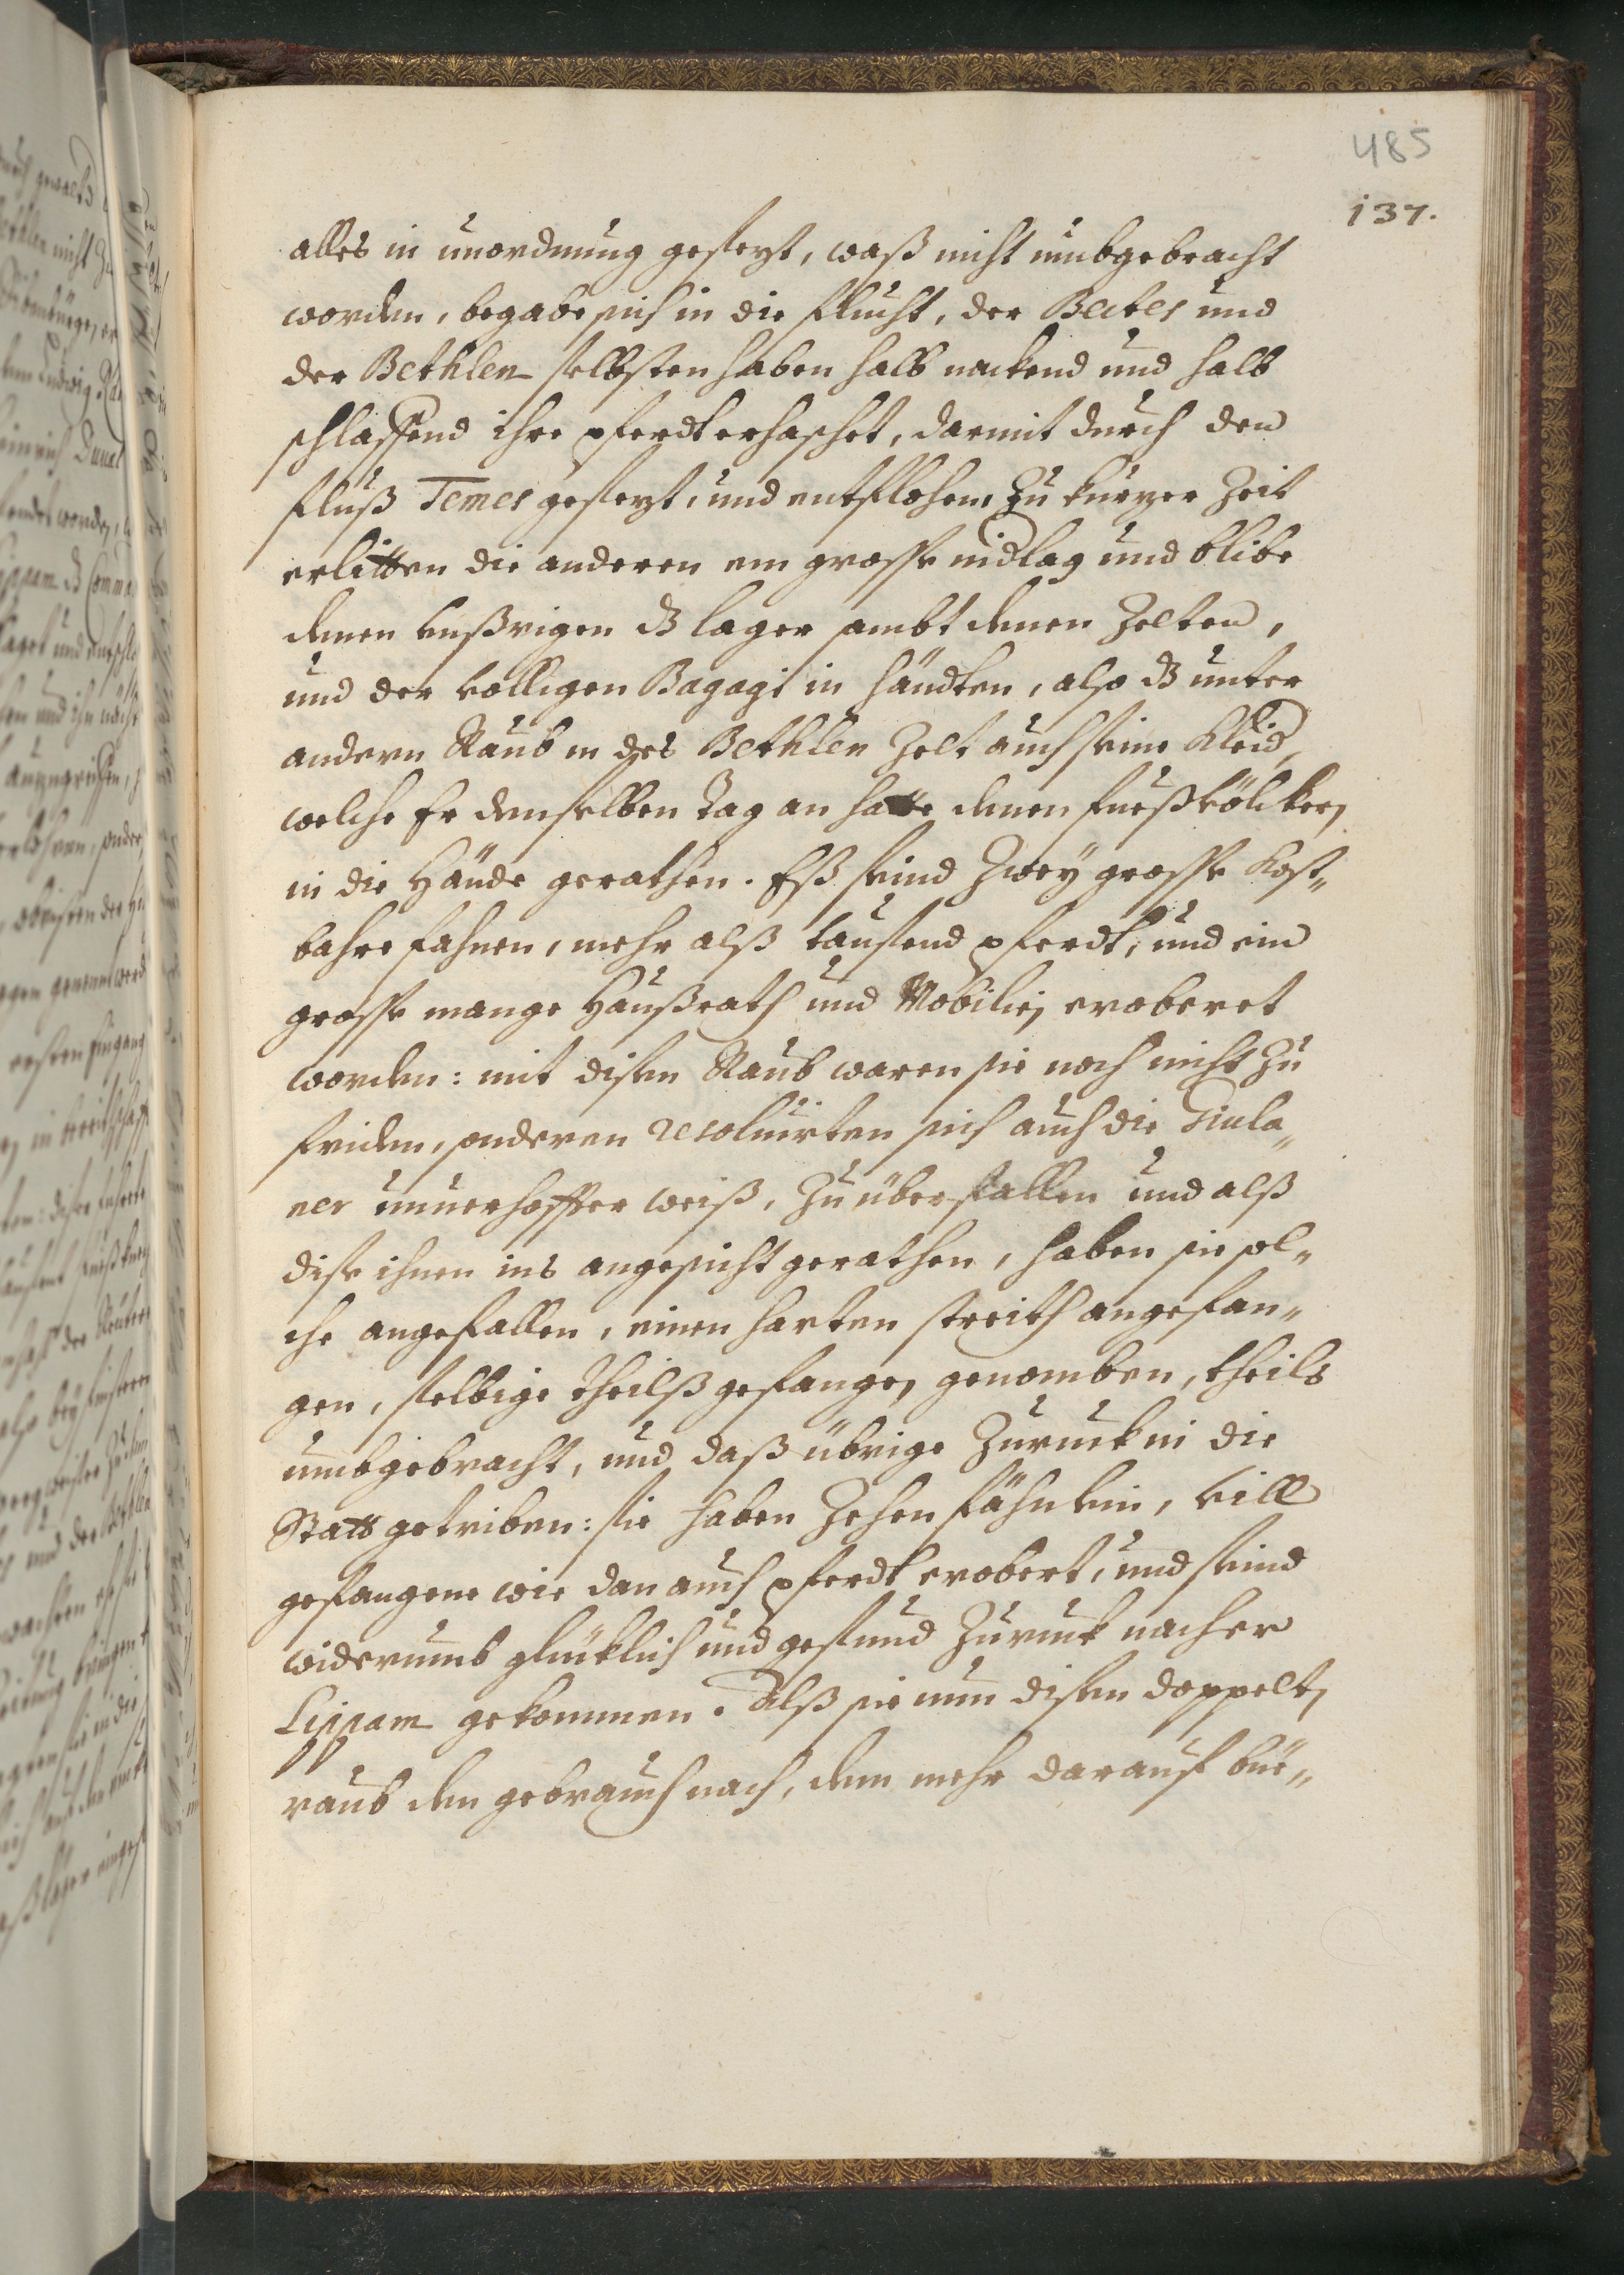 485
137.
alles in unordnung gesezt, waß nicht umbgebracht
worden, begabe sich in die flucht, der Bectes und
der Bethlen selbsten haben halb nackend und halb
schlaffend ihre pferdt erhaschet, darmit durch den
fluß Temes gesezt, und entflohen, zu kurzer Zeit
erlitten die anderen ein grosse nidlag und blibe
denen unßrigen dz lager sambt denen Zelten,
und der volligen Bagagi in händten, also dz unter
andern Raub in des Bethlen Zelt auch seine Kleid,
welche Er denselben tag an hatte denen fueßvölcker
in die Hände gerathen. Eß seind zwey grosse Kost„
bahre fahnen, mehr alß tausend pferdt, und ein
grosse mange Haußrath und Mobilien eroberet
worden: mit disen Raub waren sie noch nicht zu
friden, sonderen resoluirten sich auch die Giula„
ner unuerhoffter weiß, zu überfallen und alß
dise ihnen ins angesicht gerathen, haben sie sol„
che angefallen, einen harten streith angefan„
gen, selbige theilß gefangen genomben, theils
umbgebracht, und daß übrige zuruck in die
Statt getriben: sie haben zehen fähnlein, vill
gefangene wie dan auch pferdt erobert, und seind
widerumb glücklich und gesund zuruck nacher
Lippam gekommen. Alß sie nun disen doppelten
raub den gebrauch nach, dem mehr darauf bie„